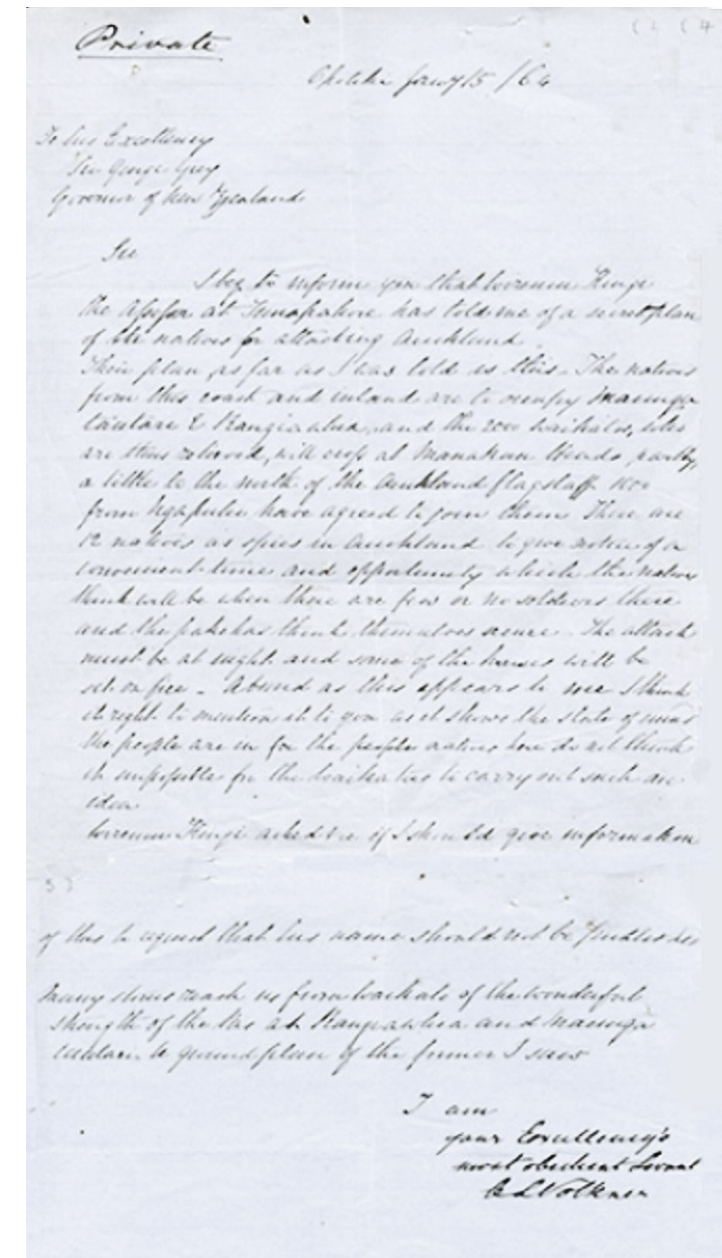 Private
Jany 15 /64
To his Excellency
Sir George Grey
Governor of New Zealand
Sir
I beg to inform you that Kingi
the Assessor at has told me of a secret plan
of the natives for attacking Auckland.
Their plan, as far as I was told is this. The natives
from this coast and inland are to occupy Maunga
tautare & Rangiawhia, and the Waikatos, who
are thus relieved, will at Manakau Heads, partly,
a little to the north of the Auckland flagstaff
from Ngapuhi have agreed to join them There are
12 natives as spies in Auckland to give notice of a
convenient time and opportunity which the natives
think will be when there are few or no soldiers there
and the pakehas think themselves secure. The attack
must be at night and some of the houses will be
set on fire - Absurd as this appears to me I think
it right to mention it to you as it shows the state of mind
the people are in for the people natives here do not think
it impossible for the Waikatos to carry out such an
idea
Kingi asked me if I should give information
of this to request that his name should not be
Many reach us from Waikato of the wonderful
strength of the at Rangiawhia and Maunga
ground plan of the former I saw
I am
your Excellency's
most obedient Servant
C S Volkner